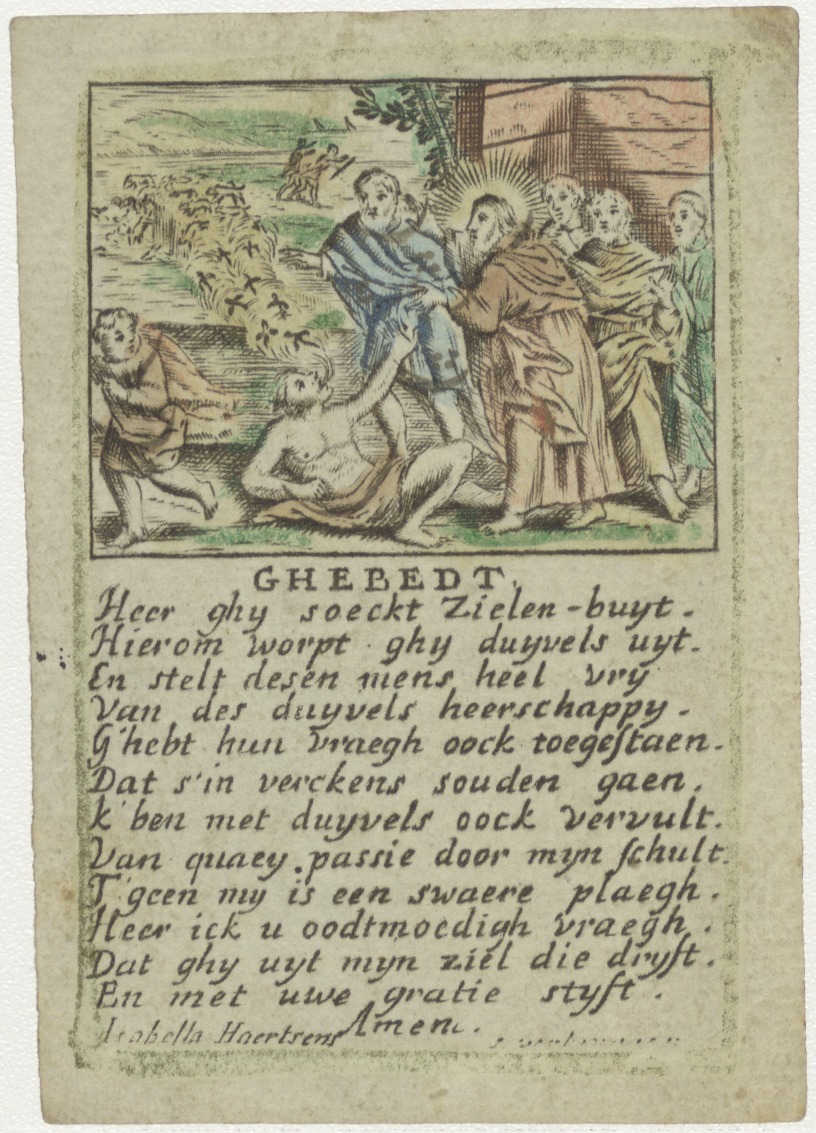 GHEBEDT.
Heer ghy soeckt Zielen-buyt.
Hierom worpt ghy duyvels uyt.
En stelt desen mens heel vrij
Van des duyvels heerschappy.
G'hebt hun vraegh oock toegestaen.
Dat s'in verckens souden gaen.
k'ben met duyvels oock vervult.
Van quaey passie door myn schult.
T'geen my is een swaere plaegh.
Heer ick u oodtmoedigh vraegh.
Dat ghy uyt myn ziel die dryft.
En met uwe gratie styft.
Amen.
Isabella Haertsens